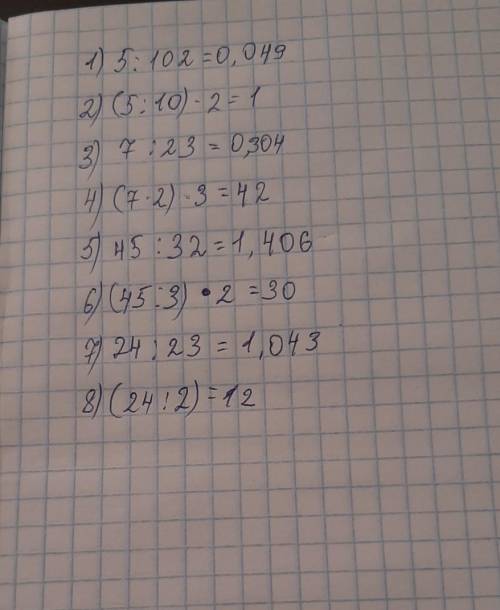 1) 5:102=0,049
2) (5:10)·2=1
3) 7:23=0,304
4) (7·2)·3=42
5) 45:32=1,406
6) (45:3)·2=30
7) 24:23=1,043
8) (24:2)=12